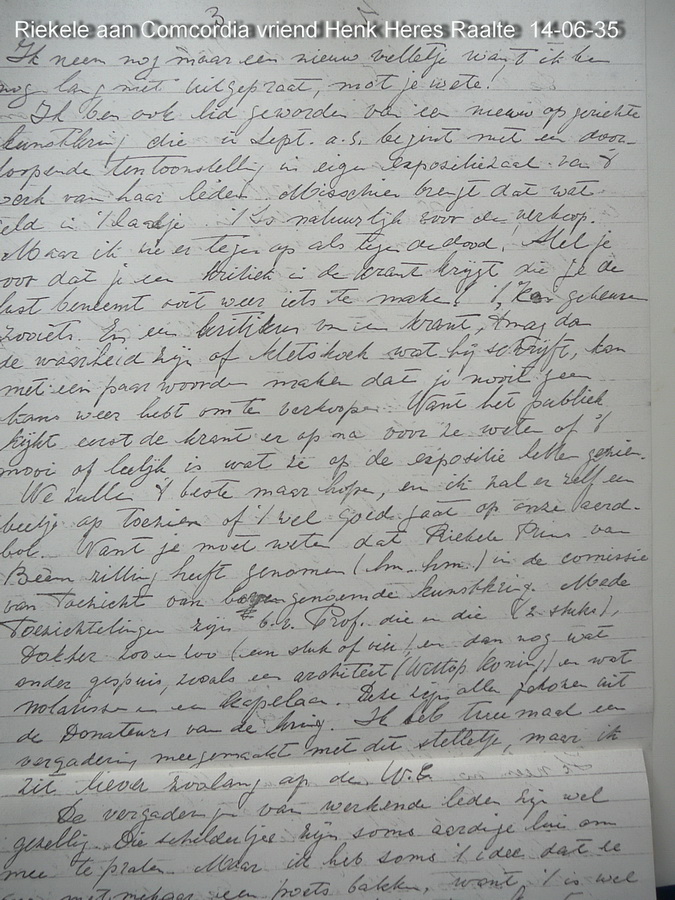 Riekele aan Comcordia vriend Henk Heres Raalte 14-06-35
3
Ik neem nog maar een nieuw velletje want ik ben
nog lang niet uitgepraat, mot je wete.
Ik ben ook lid geworden van een nieuw opgerichte
kunstkring die in Sept. a.s. begint met een door-
loopende tentoonstelling in eigen expositiezaal van 't
werk van haar leden. Misschien brengt dat wat
geld in 't laadje. 't Is natuurlijk voor den verkoop.
Maar ik zie er tegen op als tegen de dood. Stel je
voor dat je een kritiek in de krant krijgt die je de
lust beneemt ooit weer iets te maken! 't Kan gebeuren
zooiets. En een kritikus van een krant, 't mag dan
de waarheid zijn of kletskoek wat hij schrijft, kan
met een paar woorden maken dat je nooit geen
kans weer hebt om te verkoopen. Want het publiek
kijkt eerst de krant er op na voor ze weten of 't
mooi of leelijk is wat ze op de expositie hebben gezien.
We zullen 't beste maar hopen, en ik zal er zelf een
beetje op toezien of 't wel goed gaat op onze aard-
bol. Want je moet weten dat Riekele Prins van
Been zitting heeft genomen (hm. hm.) in de comissie
van Toezicht van bovengenoemde kunstkring. Mede
Toezichtelingen zijn b.v. Prof. die en die (2 stuks),
Dokter zoo en zoo (een stuk of vier) en dan nog wat
ander gespuis, zooals een architect (Wittop Koning) en wat
Notarissen en een Kapelaan. Deze zijn allen gekozen uit
de Donateurs van de kring. Ik heb twee maal een
vergadering meegemaakt met dit stelletje, maar ik
zit liever zoolang op de W.C.
De vergaderingen van werkende leden zijn wel
gezellig. Die schildertjes zijn soms aardige lui om
mee te praten. Maar ik heb soms 't idee dat ze
met mekaar een poets bakken, want 't is wel